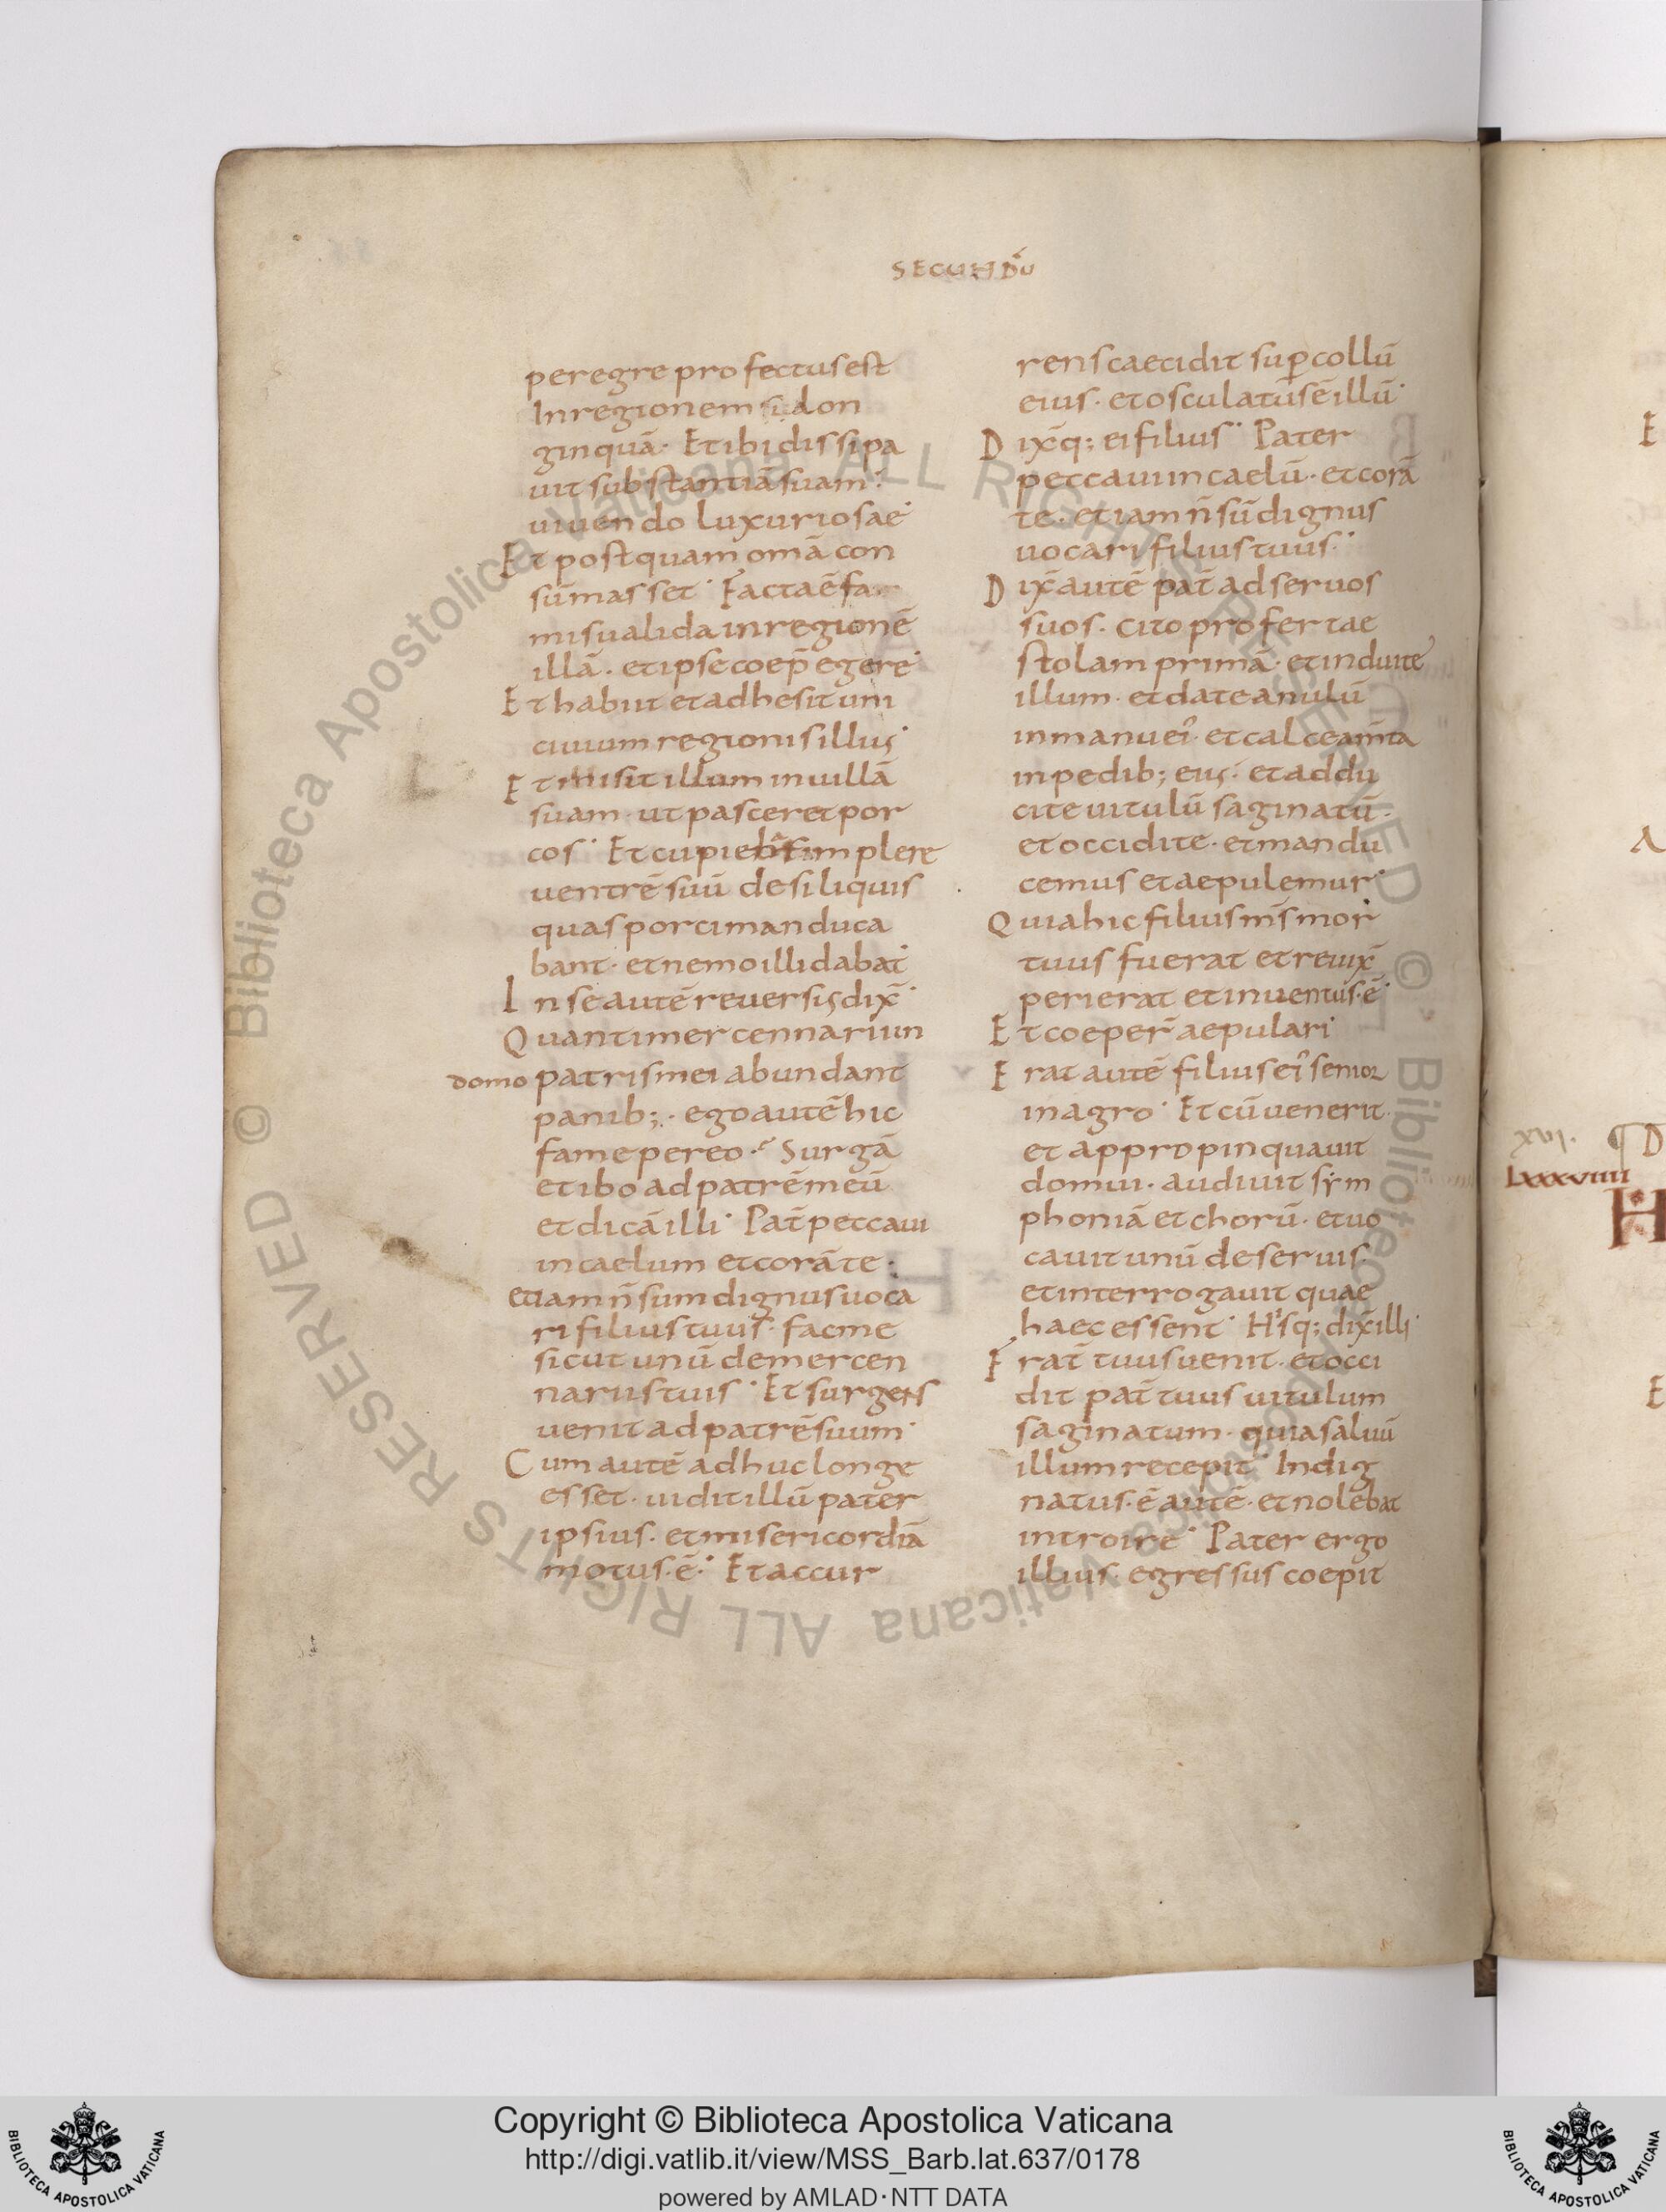 SECUNDU
peregre profectus est
In regionem si don
ginquā· Et ibi dissipa
uit substantiā suam·
uiuendo luxuriosae·
Et postquam omā con
sūmasset· Facta ē fa
mis ualida in regionē
illā· et ipse coep̄ egere·
Et habiit et adhesit uni
ciuium regionis illius·
Et misit illum in uillā
suam· ut pasceret por
cos· Et cupieb̄ implere
uentrē suū de siliquis
quas porci manduca
bant· et nemo illi dabat·
In se autē reuersus dix̄·
Quanti mercennarii in
domo patris mei abundant
panib;· ego autē hic
fame pereo· Surgā
et ibo ad patrē meū
et dicā illi· Pat̄ peccaui
in caelum et corā te·
etiam n̄ sum dignus uoca
ri filius tuus· fac me
sicut unū de mercen
nariis tuis· Et surgens
uenit ad patrē suum·
Cum autē adhuc longe
esset· uidit illū pater
ipsius· et misericordiā
motus· ē· Et accur
rens caecidit sup̄ collū
eius· et osculatus ē illū·
Dix̄q; ei filius· Pater
peccaui in caelū· et corā
te· et iam n̄ sū dignus
uocari filius tuus·
Dix̄ autē pat̄ ad seruos
suos· cito profertae
stolam primā· et induite
illum· et date anulū
in manu ei᾿· et calceam̄ta
in pedib; eius· et addu
cite uitulū saginatū·
et occidite· et mandu
cemus et aepulemur·
Quia hic filius m̄s mor
tuus fuerat et reuix̄
perierat et inuentus· ē·
Et coeper̄ aepulari·
Erat autē filius ei᾿ senior
in agro· Et cū uenerit·
et appropinquauit
domui· audiuit sym
phoniā et chorū· et uo
cauit unū de seruis·
et interrogauit quae
haec essent· Hisq; dix̄ illi·
Frat̄ tuus uenit· et occi
dit pat̄ tuus uitulum
saginatum· quia saluū
illum recepit· Indig
natus· ē autē· et nolebat
introire· Pater ergo
illius· egressus coepit
E
A
D
Lxxxviiii
H
E
Copyright © Biblioteca Apostolica Vaticana
http://digi.vatlib.it/view/MSS_Barb.lat.637/0178
powered by AMLAD·NTT DATA
BIBLIOTECA APOSTOLICA VATICANA
BIBLIOTECA APOSTOLICA VATICANA
© Biblioteca Apostolica Vaticana ALL RIGHTS RESERVED © Biblioteca Apostolica Vaticana ALL RIGHTS RESERVED